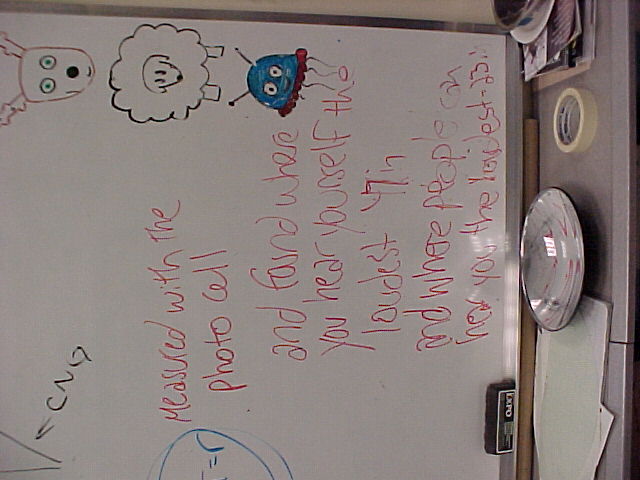 Measured with the
photo cell
and found where
you hear yourself the
loudest 47in
and where people can
hear you the loudest-23in
END
T=r
EXPO